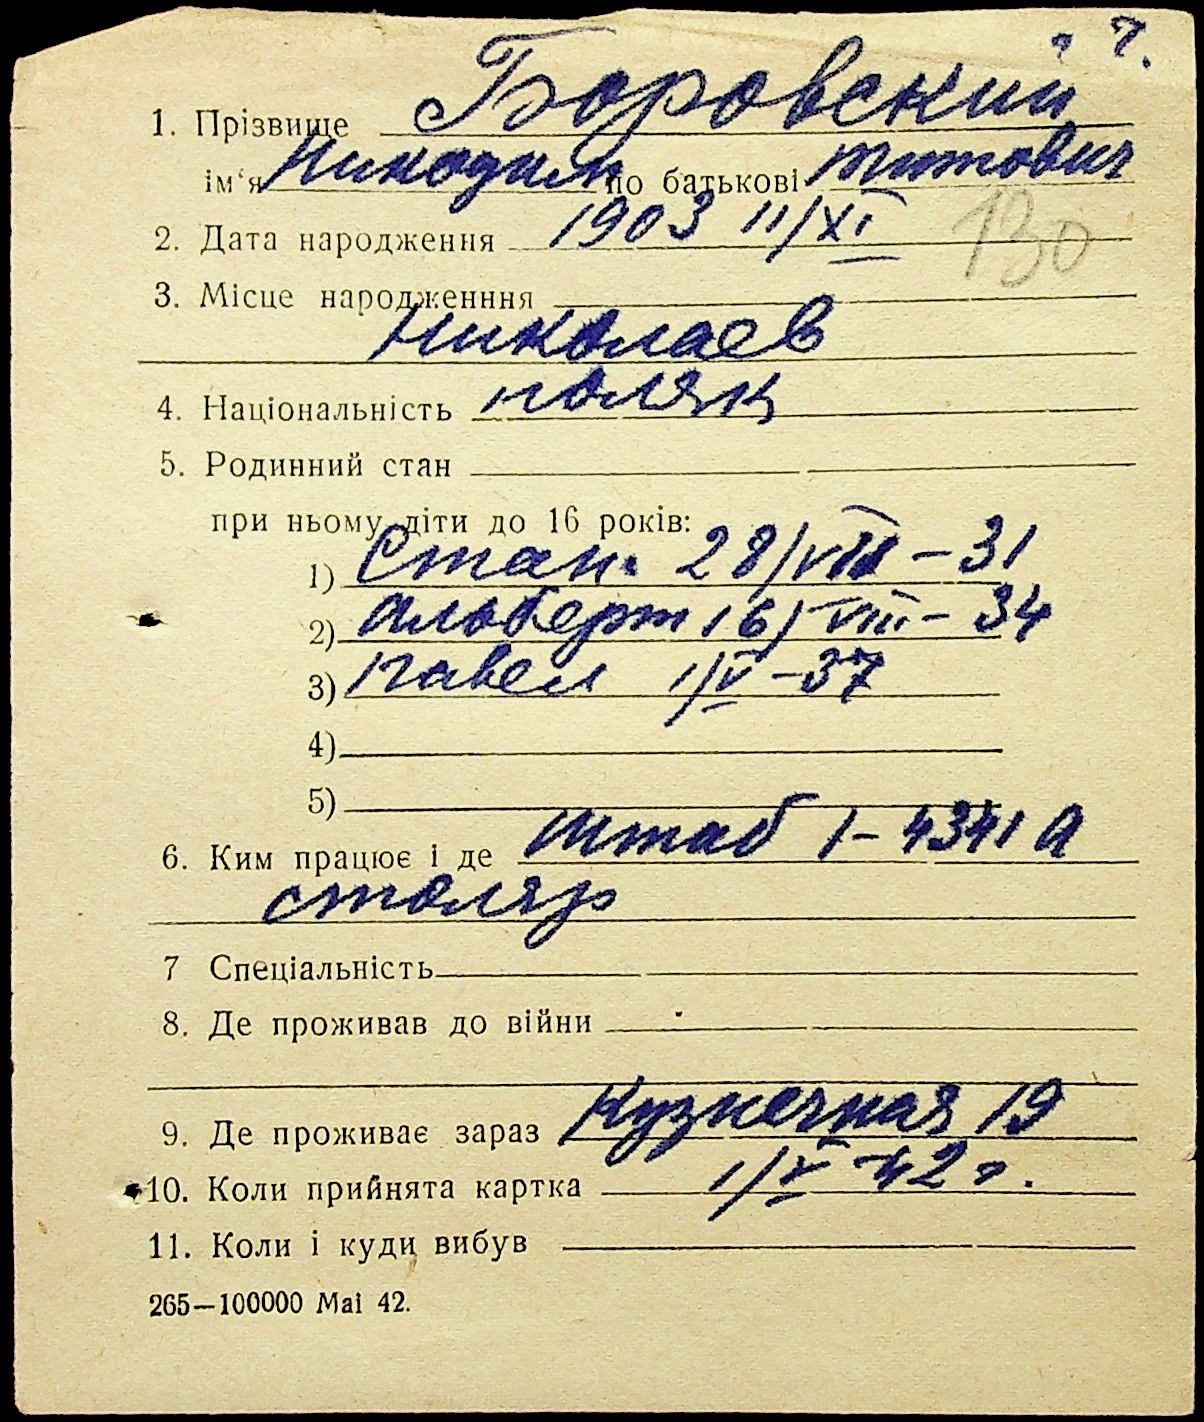 ч.
1. Прізвище Боровский
ім'я Никодим по батькові Титович
2. Дата народження 1903 11/XI
130
3. Місце народженння
Николаев
4. Національність поляк
5. Родинний стан
при ньому діти до 16 років:
1) Стан. 28/VIII – 31
2) Альберт 16/VIII – 34
3) Павел 1/V – 37
4)
5)
6. Ким працює і де Штаб 1 – 4341 А
столяр
7 Спеціальність
8. Де проживав до війни
9. Де проживає зараз Кузнечная 19
10. Коли прийнята картка 1/V 42 г.
11. Коли і куди вибув
265—100000 Маі 42.